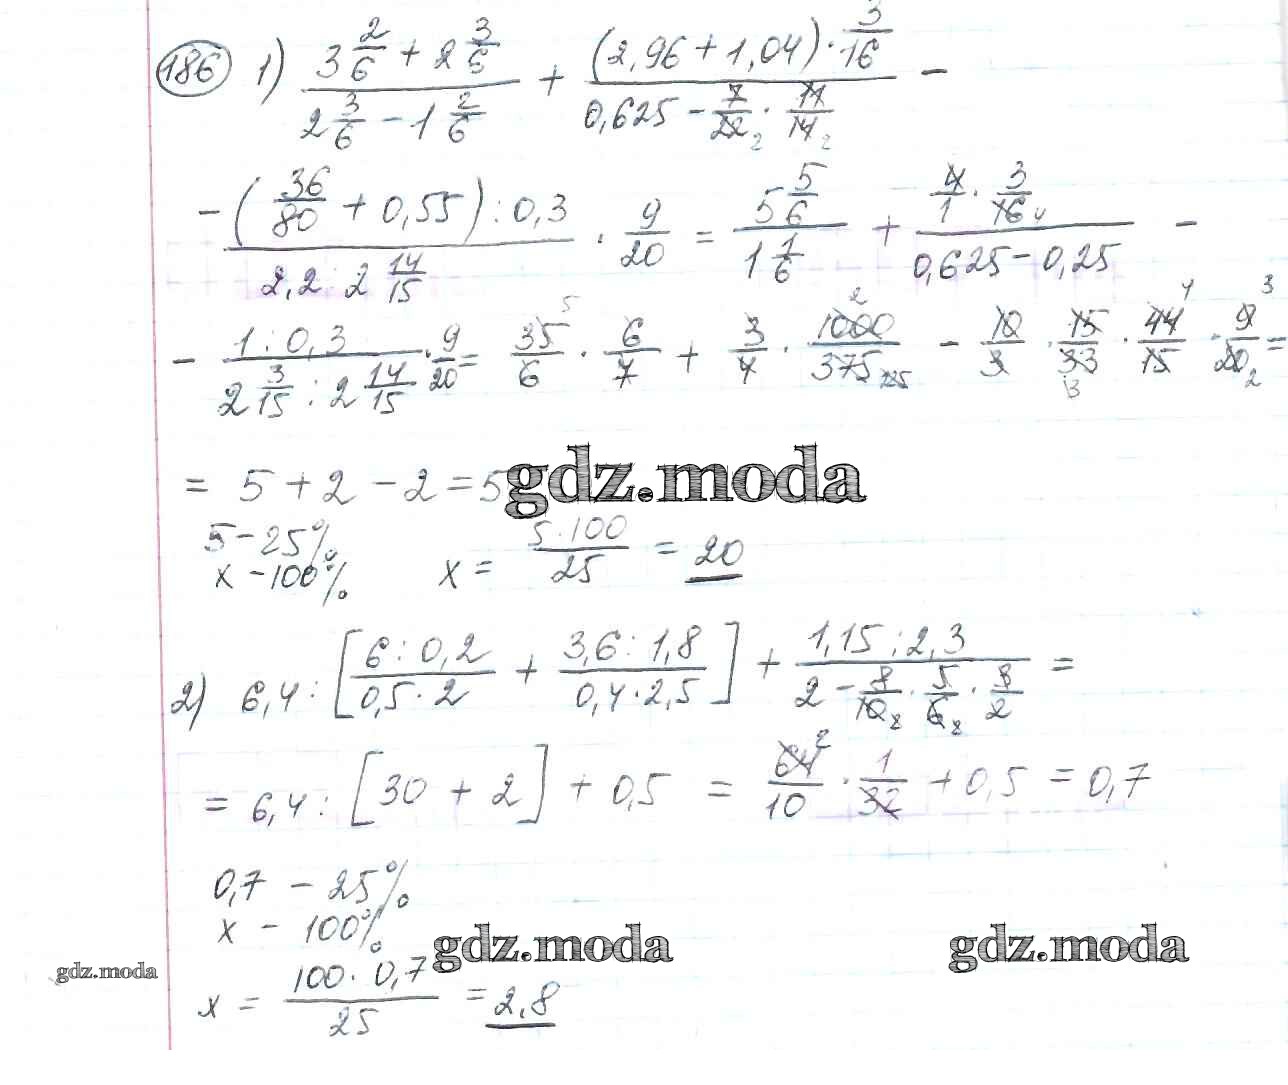 186 1) (3 2/6 + 2 3/6)/(2 3/6 - 1 2/6) + ((2,96 + 1,04) · 3/16)/(0,625 - 7/22 · 11/14) -
- ((36/80 + 0,55) : 0,3)/(2,2 : 2 14/15) · 9/20 = (5 5/6)/(1 1/6) + (4/1 · 3/16)/(0,625 - 0,25) -
- (1 : 0,3)/(2 3/15 : 2 14/15) · 9/20 = 35/6 · 6/7 + 3/4 · 1000/375 - 10/3 · 15/33 · 44/15 · 9/20 =
= 5 + 2 - 2 = 5
gdz.moda
5 - 25%
x - 100% x = 5·100/25 = 20
2) 6,4 : [(6 : 0,2)/(0,5 · 2) + (3,6 : 1,8)/(0,4 · 2,5)] + (1,15 : 2,3)/(2 - 8/10 · 5/6 · 3/2) =
= 6,4 : [30 + 2] + 0,5 = 64/10 · 1/32 + 0,5 = 0,7
0,7 - 25%
x - 100%
gdz.moda gdz.moda
gdz.moda
x = 100 · 0,7/25 = 2,8